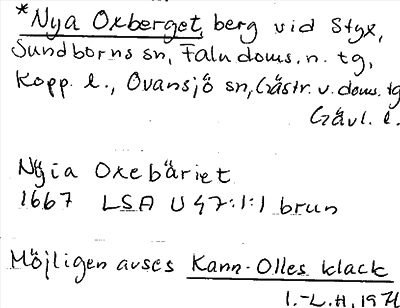 *Nya Oxberget, berg vid Styx,
Sundborns sn, Falu doms. n. tg,
Kopp. l., Ovansjö sn, Gästr. v. doms. tg
Gävl. l.
Nÿia Oxebäriet
1667 LSA U 47:1:1 brun
Möjligen avses Kann-Olles klack
I.-L. H. 197